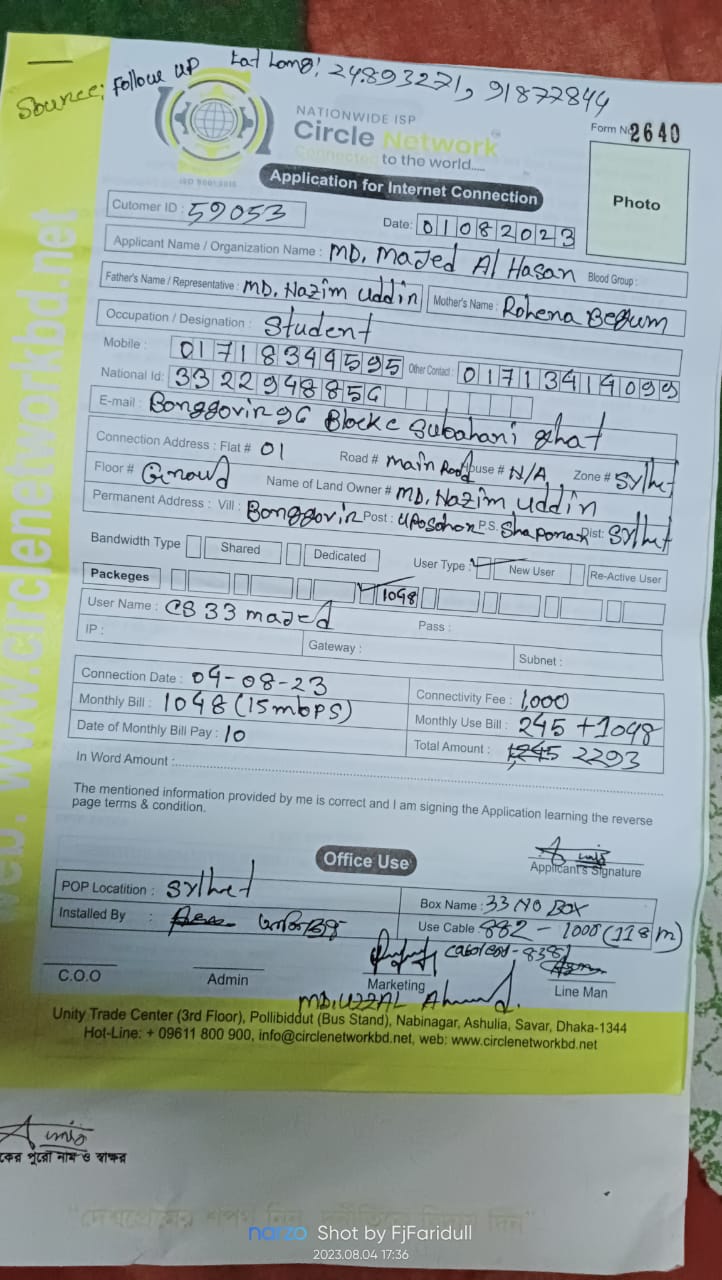 Source: Follow up Lat Long: 24.893271, 91.877844
NATIONWIDE ISP
Circle Network
Connected to the world.....
ISO 9001:2015
Form No 2640
Application for Internet Connection
Photo
Cutomer ID : 59053
Date: 01082023
Applicant Name / Organization Name : MD. Majed Al Hasan Blood Group :
Father's Name / Representative : MD. Nazim Uddin Mother's Name : Rohena Begum
Occupation / Designation : Student
Mobile : 01718344595 Other Contact : 01713414099
National Id: 3322948856
E-mail : Bonggovir 96 Block c Subahani ghat
Connection Address : Flat # 01 Road # main Road House # N/A Zone # Sylhet
Floor # Ground Name of Land Owner # MD. Nazim uddin
Permanent Address : Vill : Bonggovir Post : Uposohor P.S. Shaporan Dist: Sylhet
Bandwidth Type Shared Dedicated User Type : New User Re-Active User
Packeges 1048
User Name : CS33 majed Pass :
IP : Gateway : Subnet :
Connection Date : 04-08-23 Connectivity Fee : 1,000
Monthly Bill : 1048 (15mbps) Monthly Use Bill : 245 +1048
Date of Monthly Bill Pay : 10 Total Amount : 1,245 2293
In Word Amount :
The mentioned information provided by me is correct and I am signing the Application learning the reverse
page terms & condition.
Applicant's Signature
Office Use
POP Locatition : Sylhet Box Name : 33 NO BOX
Installed By : Use Cable : 882 - 1000 (118 m)
C.O.O Admin Marketing Line Man
MD. UZZAL Ahmed.
Unity Trade Center (3rd Floor), Pollibiddut (Bus Stand), Nabinagar, Ashulia, Savar, Dhaka-1344
Hot-Line: + 09611 800 900, info@circlenetworkbd.net, web: www.circlenetworkbd.net
web: www.circlenetworkbd.net
কের পুরো নাম ও স্বাক্ষর
narzo Shot by FjFaridull
2023.08.04 17:36